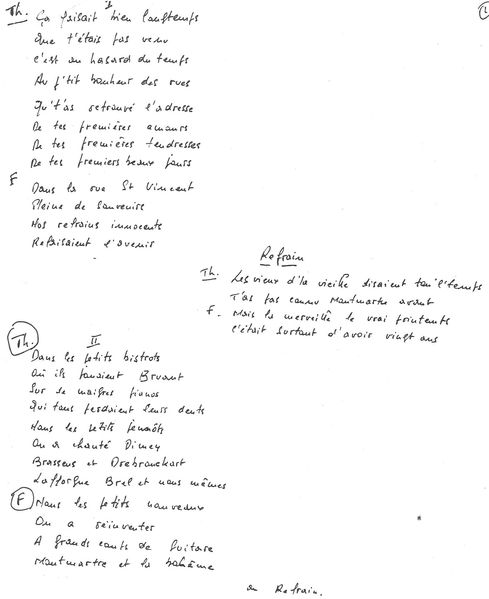 Th. I
1
Ça faisait bien longtemps
Que t'étais pas venu
c'est au hasard du temps
Au p'tit bonheur des rues
Qu't'as retrouvé l'adresse
De tes premières amours
De tes premières tendresses
De tes premiers beaux jours
F
Dans la rue St Vincent
Pleine de souvenirs
Nos refrains innocents
Refaisaient l'avenir
Refrain
Th. Les vieux d'la vieille disaient tou l'temps
T'as pas connu Montmartre avant
F. Mais la merveille le vrai printemps
c'était surtout d'avoir vingt ans
Th. II
Dans les petits bistrots
Où ils jouaient Bruant
Sur de maigres pianos
Qui tous perdaient leurs dents
Nous les petits
On a chanté Dimey
Brassens et Debronckart
Lafforgue Brel et nous mêmes
F Nous les petits nouveaux
On a réinventer
A grands coups de Guitare
Montmartre et la bohême
au Refrain.